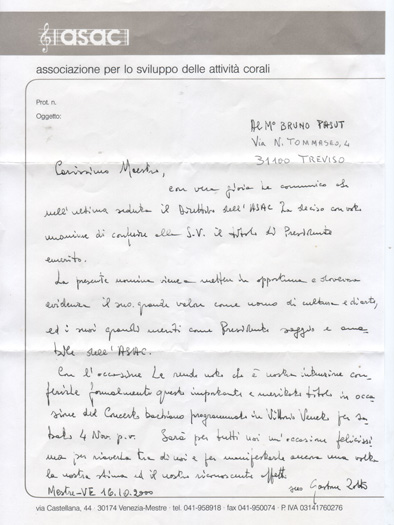 asac
associazione per lo sviluppo delle attività corali
Prot. n.
Oggetto:
Al M° BRUNO PASUT
Via N. TOMMASEO, 4
31100 TREVISO
Carissimo Maestro,
con vera gioia Le comunico che
nell'ultima seduta il Direttivo dell'ASAC ha deciso con voto
unanime di conferire alla S.V. il titolo di Presidente
emerito.
La presente nomina viene a mettere in opportuna e doverosa
evidenza il suo grande valore come uomo di cultura e d'arte,
ed i suoi grandi meriti come Presidente saggio e ama-
bile dell'ASAC.
Con l'occasione Le rendo noto che è nostra intenzione con-
ferirle formalmente questo importante e meritato titolo in occa-
sione del Concerto bachiano programmato in Vittorio Veneto per sa-
bato 4 Nov. p.v. Sarà per tutti noi un'occasione felicissi-
ma per riaverla tra di noi e per manifestarle ancora una volta
la nostra stima ed il nostro riconoscente affetto.
Mestre-VE 16.10.2000 suo Gastone
via Castellana, 44 30174 Venezia-Mestre · tel. 041-958918 · fax 041-950074 · P. IVA 03141760276